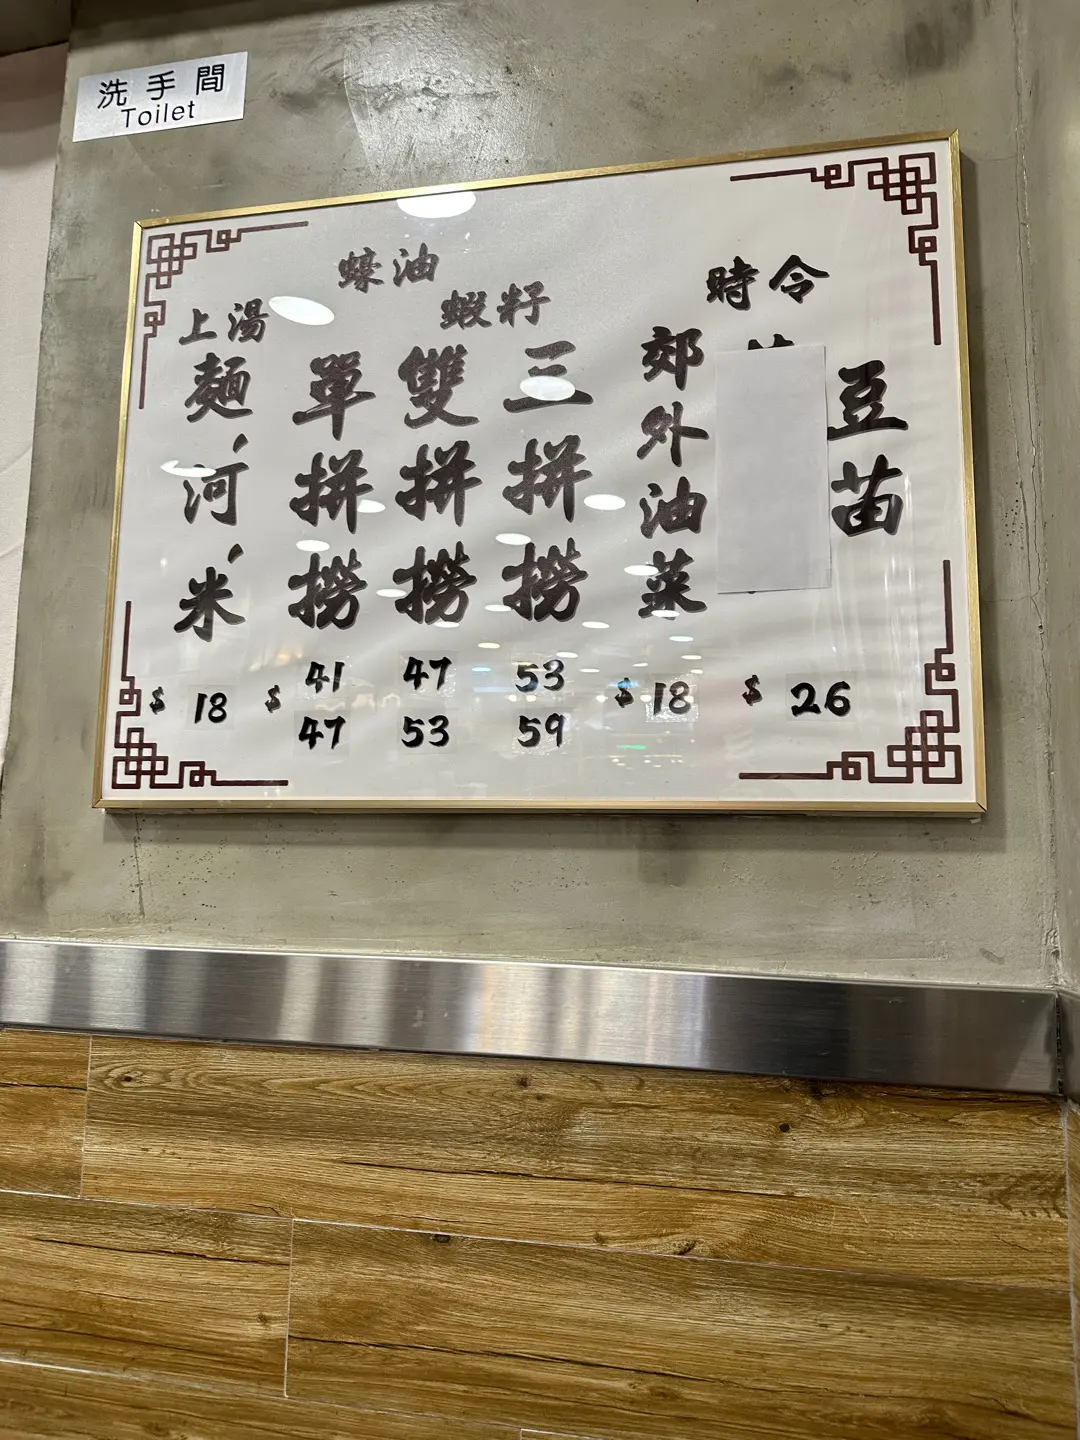 洗手間
Toilet
上湯
麵、河、米
$ 18
蠔油
蝦籽
單拼撈
$ 41
47
雙拼撈
47
53
三拼撈
53
59
郊外油菜
$ 18
時令
豆苗
$ 26